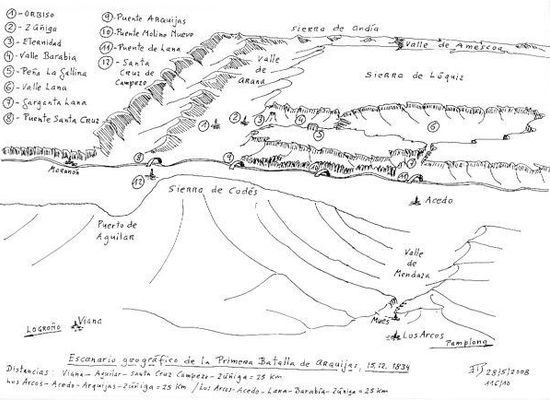 1-ORBISO
2-Zúñiga
3-Eternidad
4-Valle Barabia
5-Peña La Gallina
6-Valle Lana
7-Garganta Lana
8-Puente Santa Cruz
9-Puente Arquijas
10-Puente Molino Nuevo
11-Puente de Lana
12-Santa
Cruz de
Campezo
Sierra de Andía
Valle de Améscoa
Valle
de
Arana
Sierra de Lóquiz
1
2
3
4
5
6
7
8
9
10
11
12
Marañón
Sierra de Codés
Acedo
Puerto de
Aguilar
Valle
de
Mendaza
Mués
Los Arcos
Pamplona
Logroño
Viana
Escenario geográfico de la Primera Batalla de Arquijas, 15.12.1834
Distancias: Viana-Aguilar-Santa Cruz Campezo-Zúñiga=25 Km
Los Arcos-Acedo-Arquijas-Zúñiga=25 Km / Los Arcos-Acedo-Lana-Barabia-Zúñiga=25 Km
28/5/2008